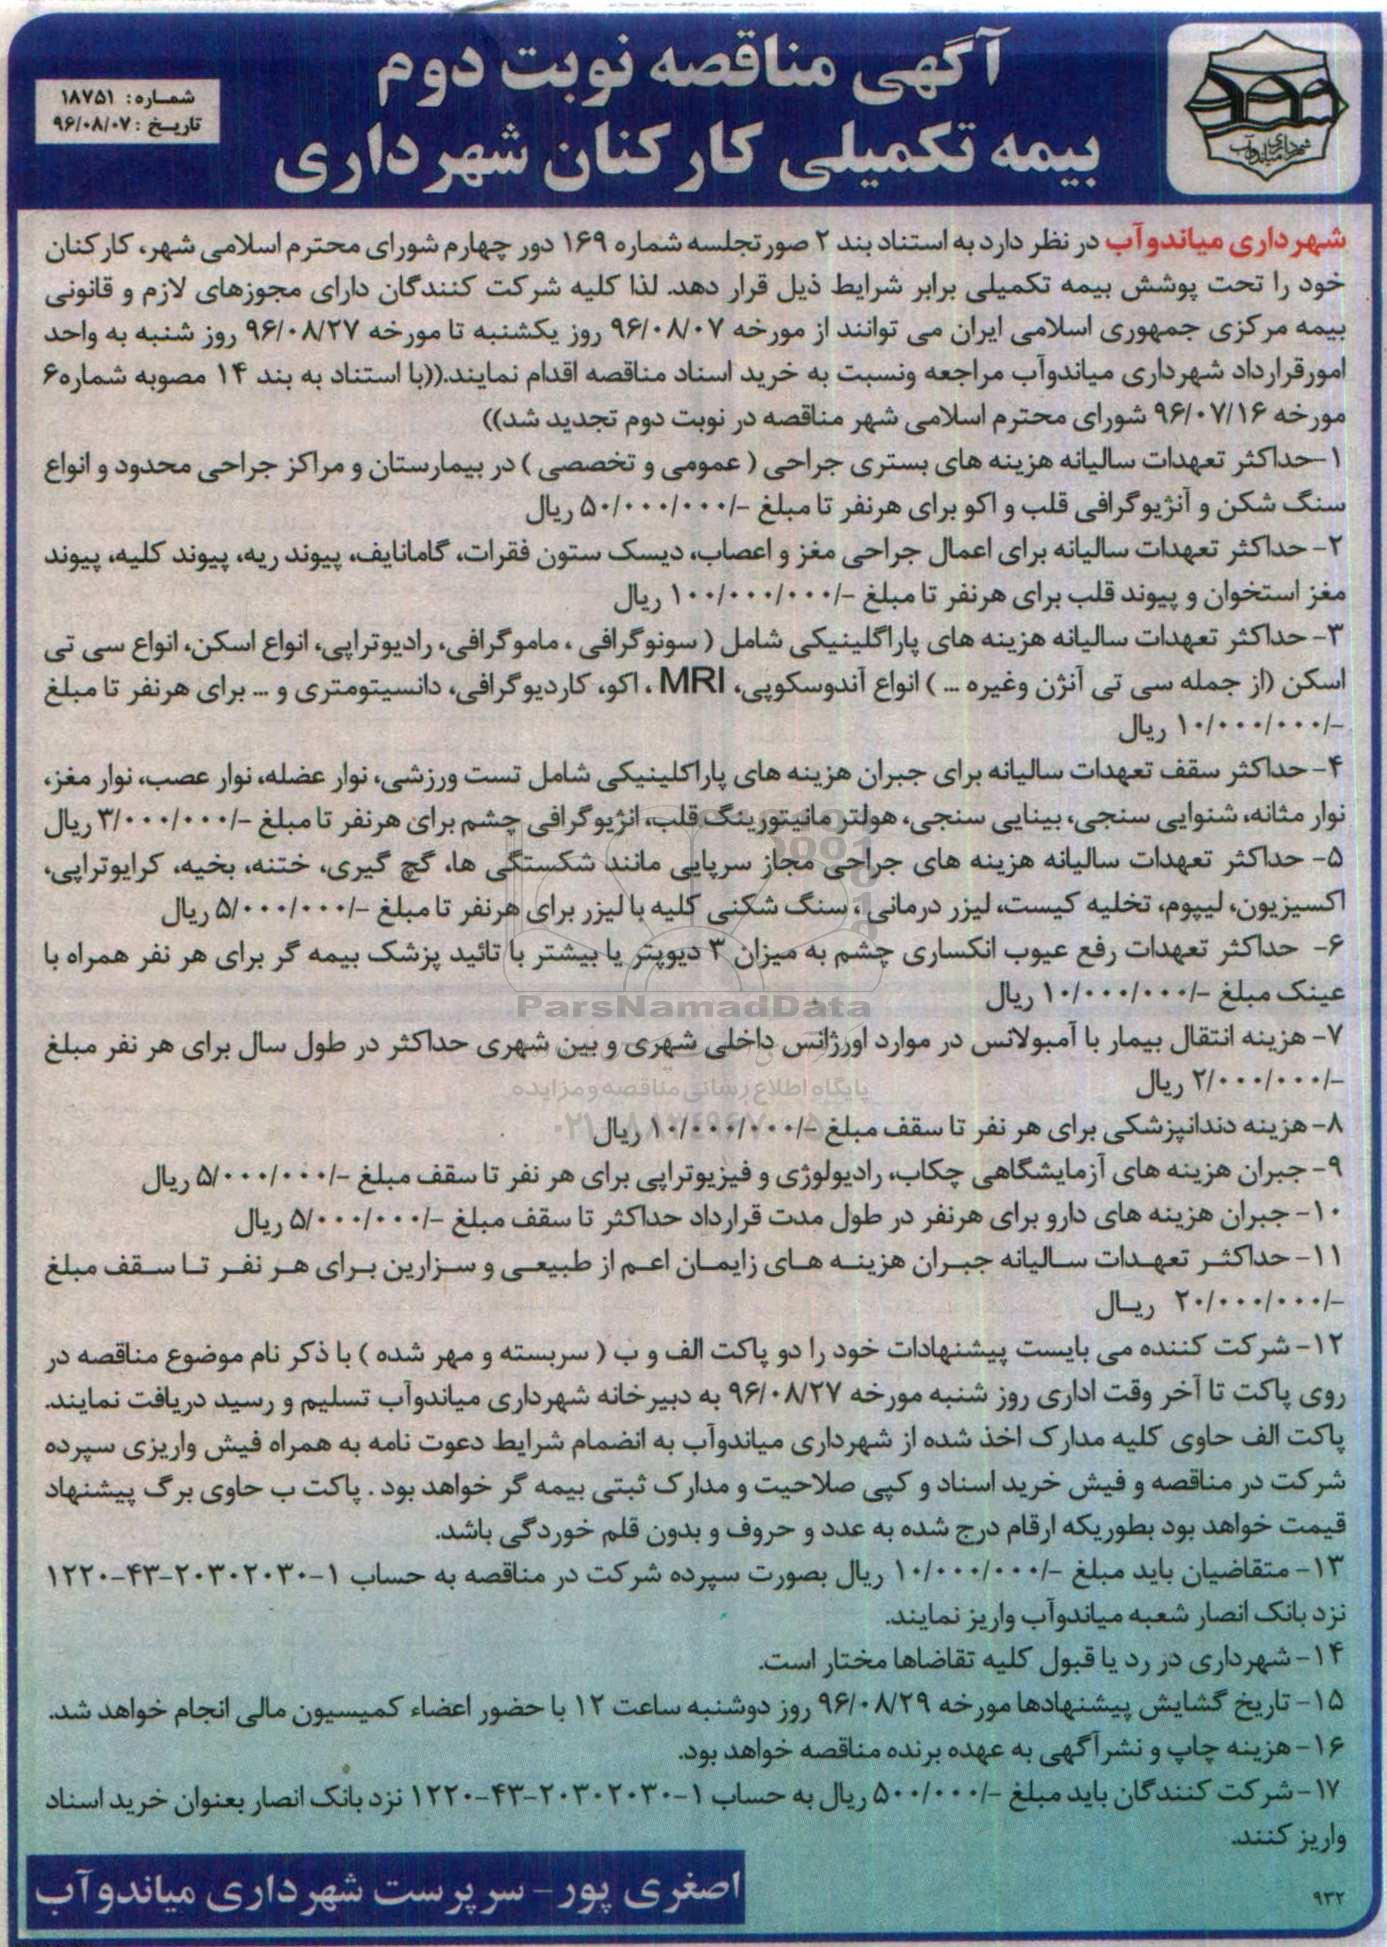 آگهی مناقصه نوبت دوم
بیمه تکمیلی کارکنان شهرداری
شماره: ۱۸۷۵۱
تاریخ: ۹۶/۰۸/۰۷
شهرداری میاندوآب
شهرداری میاندوآب در نظر دارد به استناد بند ۲ صورتجلسه شماره ۱۶۹ دور چهارم شورای محترم اسلامی شهر، کارکنان
خود را تحت پوشش بیمه تکمیلی برابر شرایط ذیل قرار دهد. لذا کلیه شرکت کنندگان دارای مجوزهای لازم و قانونی
بیمه مرکزی جمهوری اسلامی ایران می توانند از مورخه ۹۶/۰۸/۰۷ روز یکشنبه تا مورخه ۹۶/۰۸/۲۷ روز شنبه به واحد
امورقرارداد شهرداری میاندوآب مراجعه ونسبت به خرید اسناد مناقصه اقدام نمایند.((با استناد به بند ۱۴ مصوبه شماره۶
مورخه ۹۶/۰۷/۱۶ شورای محترم اسلامی شهر مناقصه در نوبت دوم تجدید شد))
۱-حداکثر تعهدات سالیانه هزینه های بستری جراحی ( عمومی و تخصصی ) در بیمارستان و مراکز جراحی محدود و انواع
سنگ شکن و آنژیوگرافی قلب و اکو برای هرنفر تا مبلغ -/۵۰/۰۰۰/۰۰۰ ریال
۲- حداکثر تعهدات سالیانه برای اعمال جراحی مغز و اعصاب، دیسک ستون فقرات، گامانایف، پیوند ریه، پیوند کلیه، پیوند
مغز استخوان و پیوند قلب برای هرنفر تا مبلغ -/۱۰۰/۰۰۰/۰۰۰ ریال
۳- حداکثر تعهدات سالیانه هزینه های پاراگلینیکی شامل ( سونوگرافی ، ماموگرافی، رادیوتراپی، انواع اسکن، انواع سی تی
اسکن (از جمله سی تی آنژن وغیره ... ) انواع آندوسکوپی، MRI ، اکو، کاردیوگرافی، دانسیتومتری و ... برای هرنفر تا مبلغ
-/۱۰/۰۰۰/۰۰۰ ریال
۴- حداکثر سقف تعهدات سالیانه برای جبران هزینه های پاراکلینیکی شامل تست ورزشی، نوار عضله، نوار عصب، نوار مغز،
نوار مثانه، شنوایی سنجی، بینایی سنجی، هولتر مانیتورینگ قلب، انژیوگرافی چشم برای هرنفر تا مبلغ -/۳/۰۰۰/۰۰۰ ریال
۵- حداکثر تعهدات سالیانه هزینه های جراحی مجاز سرپایی مانند شکستگی ها، گچ گیری، ختنه، بخیه، کرایوتراپی،
اکسیزیون، لیپوم، تخلیه کیست، لیزر درمانی ، سنگ شکنی کلیه با لیزر برای هرنفر تا مبلغ -/۵/۰۰۰/۰۰۰ ریال
۶- حداکثر تعهدات رفع عیوب انکساری چشم به میزان ۳ دیوپتر یا بیشتر با تائید پزشک بیمه گر برای هر نفر همراه با
عینک مبلغ -/۱۰/۰۰۰/۰۰۰ ریال
ParsNamadData
۷- هزینه انتقال بیمار با آمبولانس در موارد اورژانس داخلی شهری و بین شهری حداکثر در طول سال برای هر نفر مبلغ
-/۲/۰۰۰/۰۰۰ ریال
پایگاه اطلاع رسانی مناقصه و مزایده
۸- هزینه دندانپزشکی برای هر نفر تا سقف مبلغ -/۱۰/۰۰۰/۰۰۰ ریال
۹- جبران هزینه های آزمایشگاهی چکاب، رادیولوژی و فیزیوتراپی برای هر نفر تا سقف مبلغ -/۵/۰۰۰/۰۰۰ ریال
۱۰- جبران هزینه های دارو برای هرنفر در طول مدت قرارداد حداکثر تا سقف مبلغ -/۵/۰۰۰/۰۰۰ ریال
۱۱- حداکثر تعهدات سالیانه جبران هزینه های زایمان اعم از طبیعی و سزارین برای هر نفر تا سقف مبلغ
-/۲۰/۰۰۰/۰۰۰ ریال
۱۲- شرکت کننده می بایست پیشنهادات خود را دو پاکت الف و ب ( سربسته و مهر شده ) با ذکر نام موضوع مناقصه در
روی پاکت تا آخر وقت اداری روز شنبه مورخه ۹۶/۰۸/۲۷ به دبیرخانه شهرداری میاندوآب تسلیم و رسید دریافت نمایند.
پاکت الف حاوی کلیه مدارک اخذ شده از شهرداری میاندوآب به انضمام شرایط دعوت نامه به همراه فیش واریزی سپرده
شرکت در مناقصه و فیش خرید اسناد و کپی صلاحیت و مدارک ثبتی بیمه گر خواهد بود . پاکت ب حاوی برگ پیشنهاد
قیمت خواهد بود بطوریکه ارقام درج شده به عدد و حروف و بدون قلم خوردگی باشد.
۱۳- متقاضیان باید مبلغ -/۱۰/۰۰۰/۰۰۰ ریال بصورت سپرده شرکت در مناقصه به حساب ۱-۲۰۳۰۲۰۳۰-۴۳-۱۲۲۰
نزد بانک انصار شعبه میاندوآب واریز نمایند.
۱۴- شهرداری در رد یا قبول کلیه تقاضاها مختار است.
۱۵- تاریخ گشایش پیشنهادها مورخه ۹۶/۰۸/۲۹ روز دوشنبه ساعت ۱۲ با حضور اعضاء کمیسیون مالی انجام خواهد شد.
۱۶- هزینه چاپ و نشرآگهی به عهده برنده مناقصه خواهد بود.
۱۷- شرکت کنندگان باید مبلغ -/۵۰۰/۰۰۰ ریال به حساب ۱-۲۰۳۰۲۰۳۰-۴۳-۱۲۲۰ نزد بانک انصار بعنوان خرید اسناد
واریز کنند.
اصغری پور - سرپرست شهرداری میاندوآب
۹۳۲